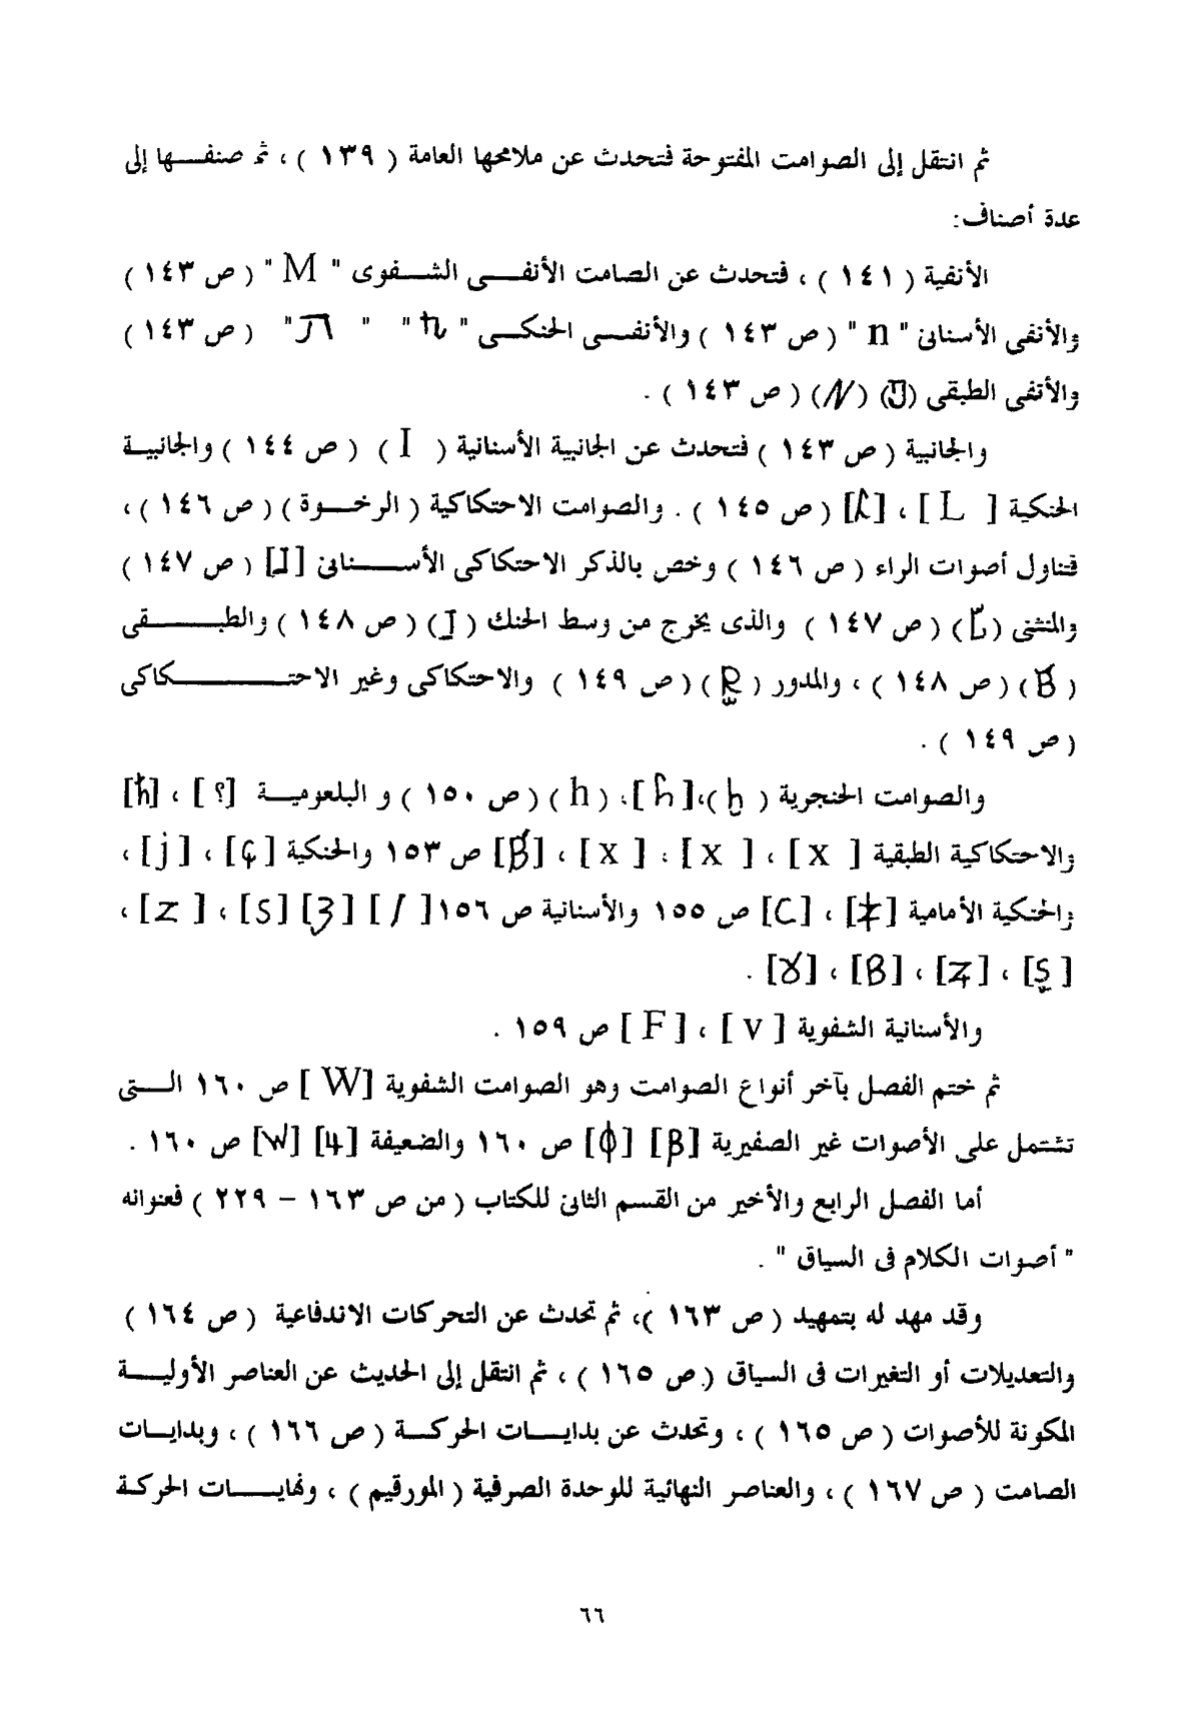 ثم انتقل إلى الصوامت المفتوحة فتحدث عن ملامحها العامة ( ١٣٩ ) ، ثم صنفـــها إلى
عدة أصناف:
الأنفية ( ١٤١ ) ، فتحدث عن الصامت الأنفـــى الشـــفوى " M " ( ص ١٤٣ )
والأنفى الأسنانى " n " ( ص ١٤٣ ) والأنفـــى الحنكـــى " " " " ( ص ١٤٣ )
والأنفى الطبقى ( ) (N) ( ص ١٤٣ ) .
والجانبية ( ص ١٤٣ ) فتحدث عن الجانبية الأسنانية ( I ) ( ص ١٤٤ ) والجانبيـــة
الحنكية [ L ] ، [ʎ] ( ص ١٤٥ ) . والصوامت الاحتكاكية ( الرخـــوة ) ( ص ١٤٦ ) ،
فتناول أصوات الراء ( ص ١٤٦ ) وخص بالذكر الاحتكاكى الأســـنانى [ɹ] ( ص ١٤٧ )
والمنثنى ( ) ( ص ١٤٧ ) والذى يخرج من وسط الحنك ( ) ( ص ١٤٨ ) والطبـــقى
( ) ( ص ١٤٨ ) ، والمدور ( ) ( ص ١٤٩ ) والاحتكاكى وغير الاحتـــكاكى
( ص ١٤٩ ) .
والصوامت الحنجرية ( ) ،[ɦ] ، ( h ) ( ص ١٥٠ ) و البلعوميـــة [؟ ] ، [ħ]
والاحتكاكية الطبقية [ x ] ، [ x ] ، [ x ] ، [ ] ص ١٥٣ والحنكية [ç] ، [j] ،
والحنكية الأمامية [ ] ، [C] ص ١٥٥ والأسنانية ص ١٥٦ [ ʃ ] [ʒ] [s] ، [ z ] ،
[ ] ، [ ] ، [B] ، [ɣ] .
والأسنانية الشفوية [ v ] ، [ F ] ص ١٥٩ .
ثم ختم الفصل بآخر أنواع الصوامت وهو الصوامت الشفوية [W ] ص ١٦٠ الـــتى
تشتمل على الأصوات غير الصفيرية [β] [ɸ] ص ١٦٠ والضعيفة [ɥ] [w] ص ١٦٠ .
أما الفصل الرابع والأخير من القسم الثانى للكتاب ( من ص ١٦٣ – ٢٢٩ ) فعنوانه
" أصوات الكلام فى السياق " .
وقد مهد له بتمهيد ( ص ١٦٣ )، ثم تحدث عن التحركات الاندفاعية ( ص ١٦٤ )
والتعديلات أو التغيرات فى السياق ( ص ١٦٥ ) ، ثم انتقل إلى الحديث عن العناصر الأوليـــة
المكونة للأصوات ( ص ١٦٥ ) ، وتحدث عن بدايـــات الحركـــة ( ص ١٦٦ ) ، وبدايـــات
الصامت ( ص ١٦٧ ) ، والعناصر النهائية للوحدة الصرفية ( المورقيم ) ، ونهايـــات الحركـة
٦٦